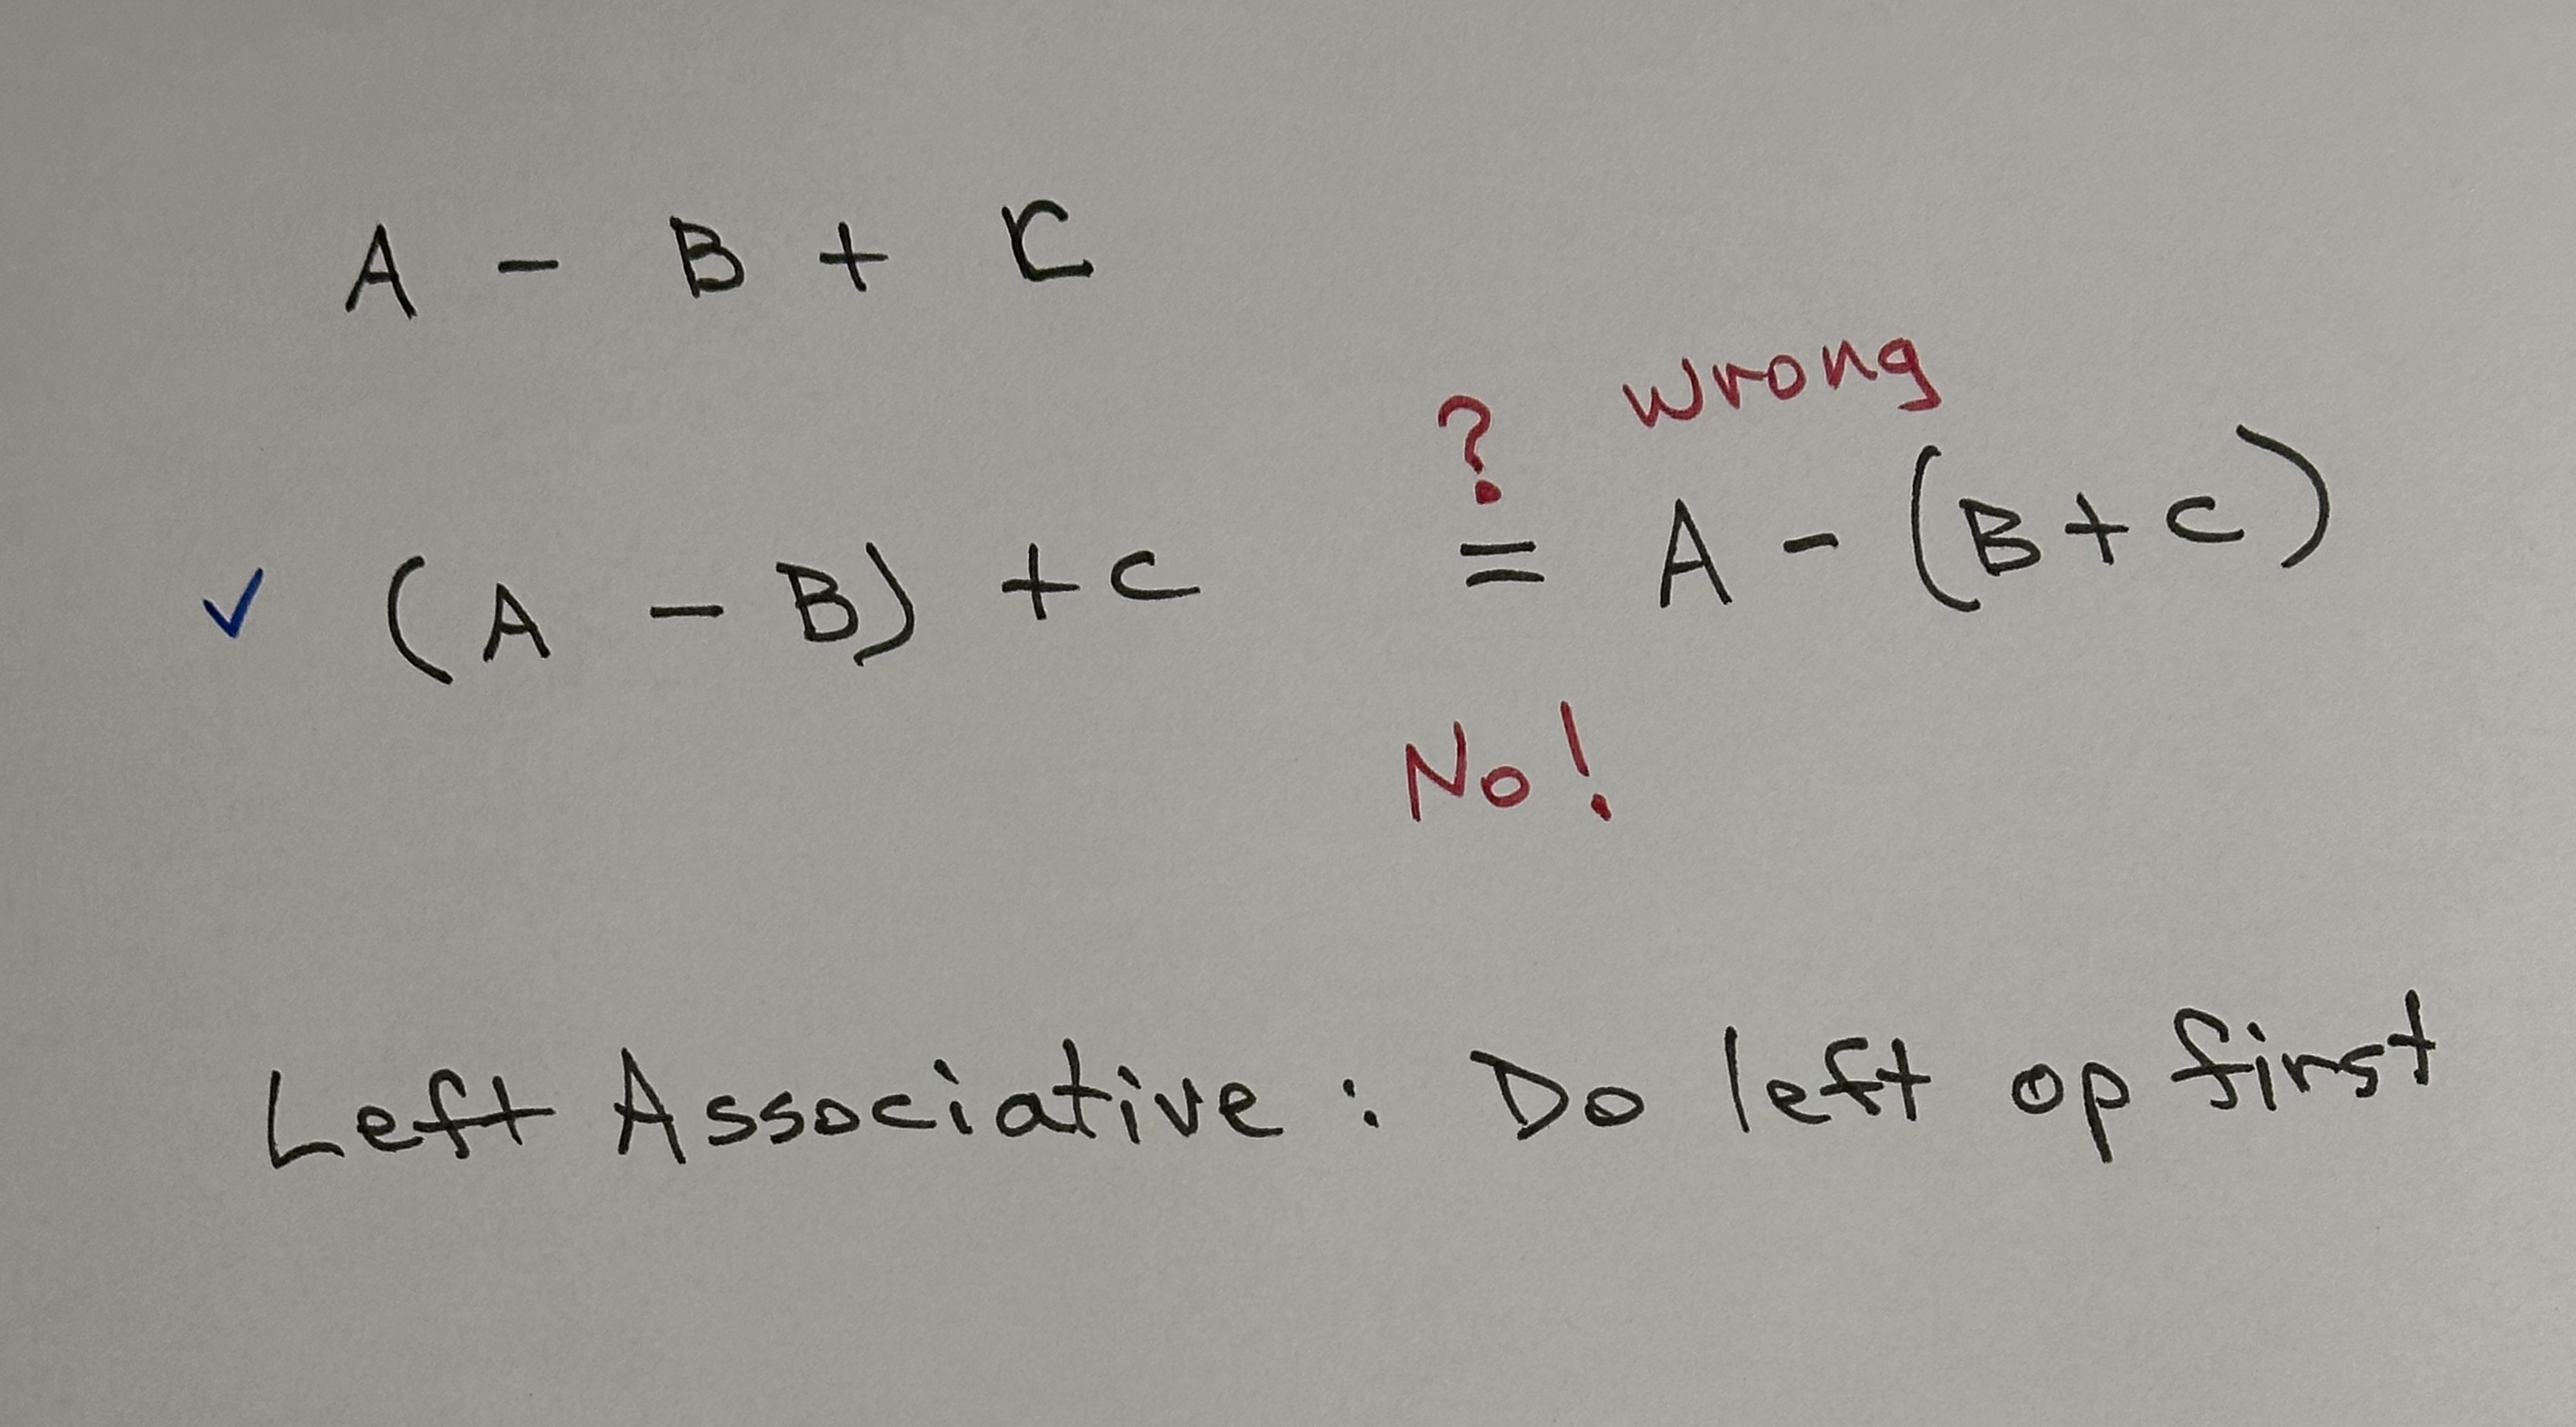 A - B + C
wrong
?
✓ (A - B) + C = A - (B + C)
No!
Left Associative : Do left op first